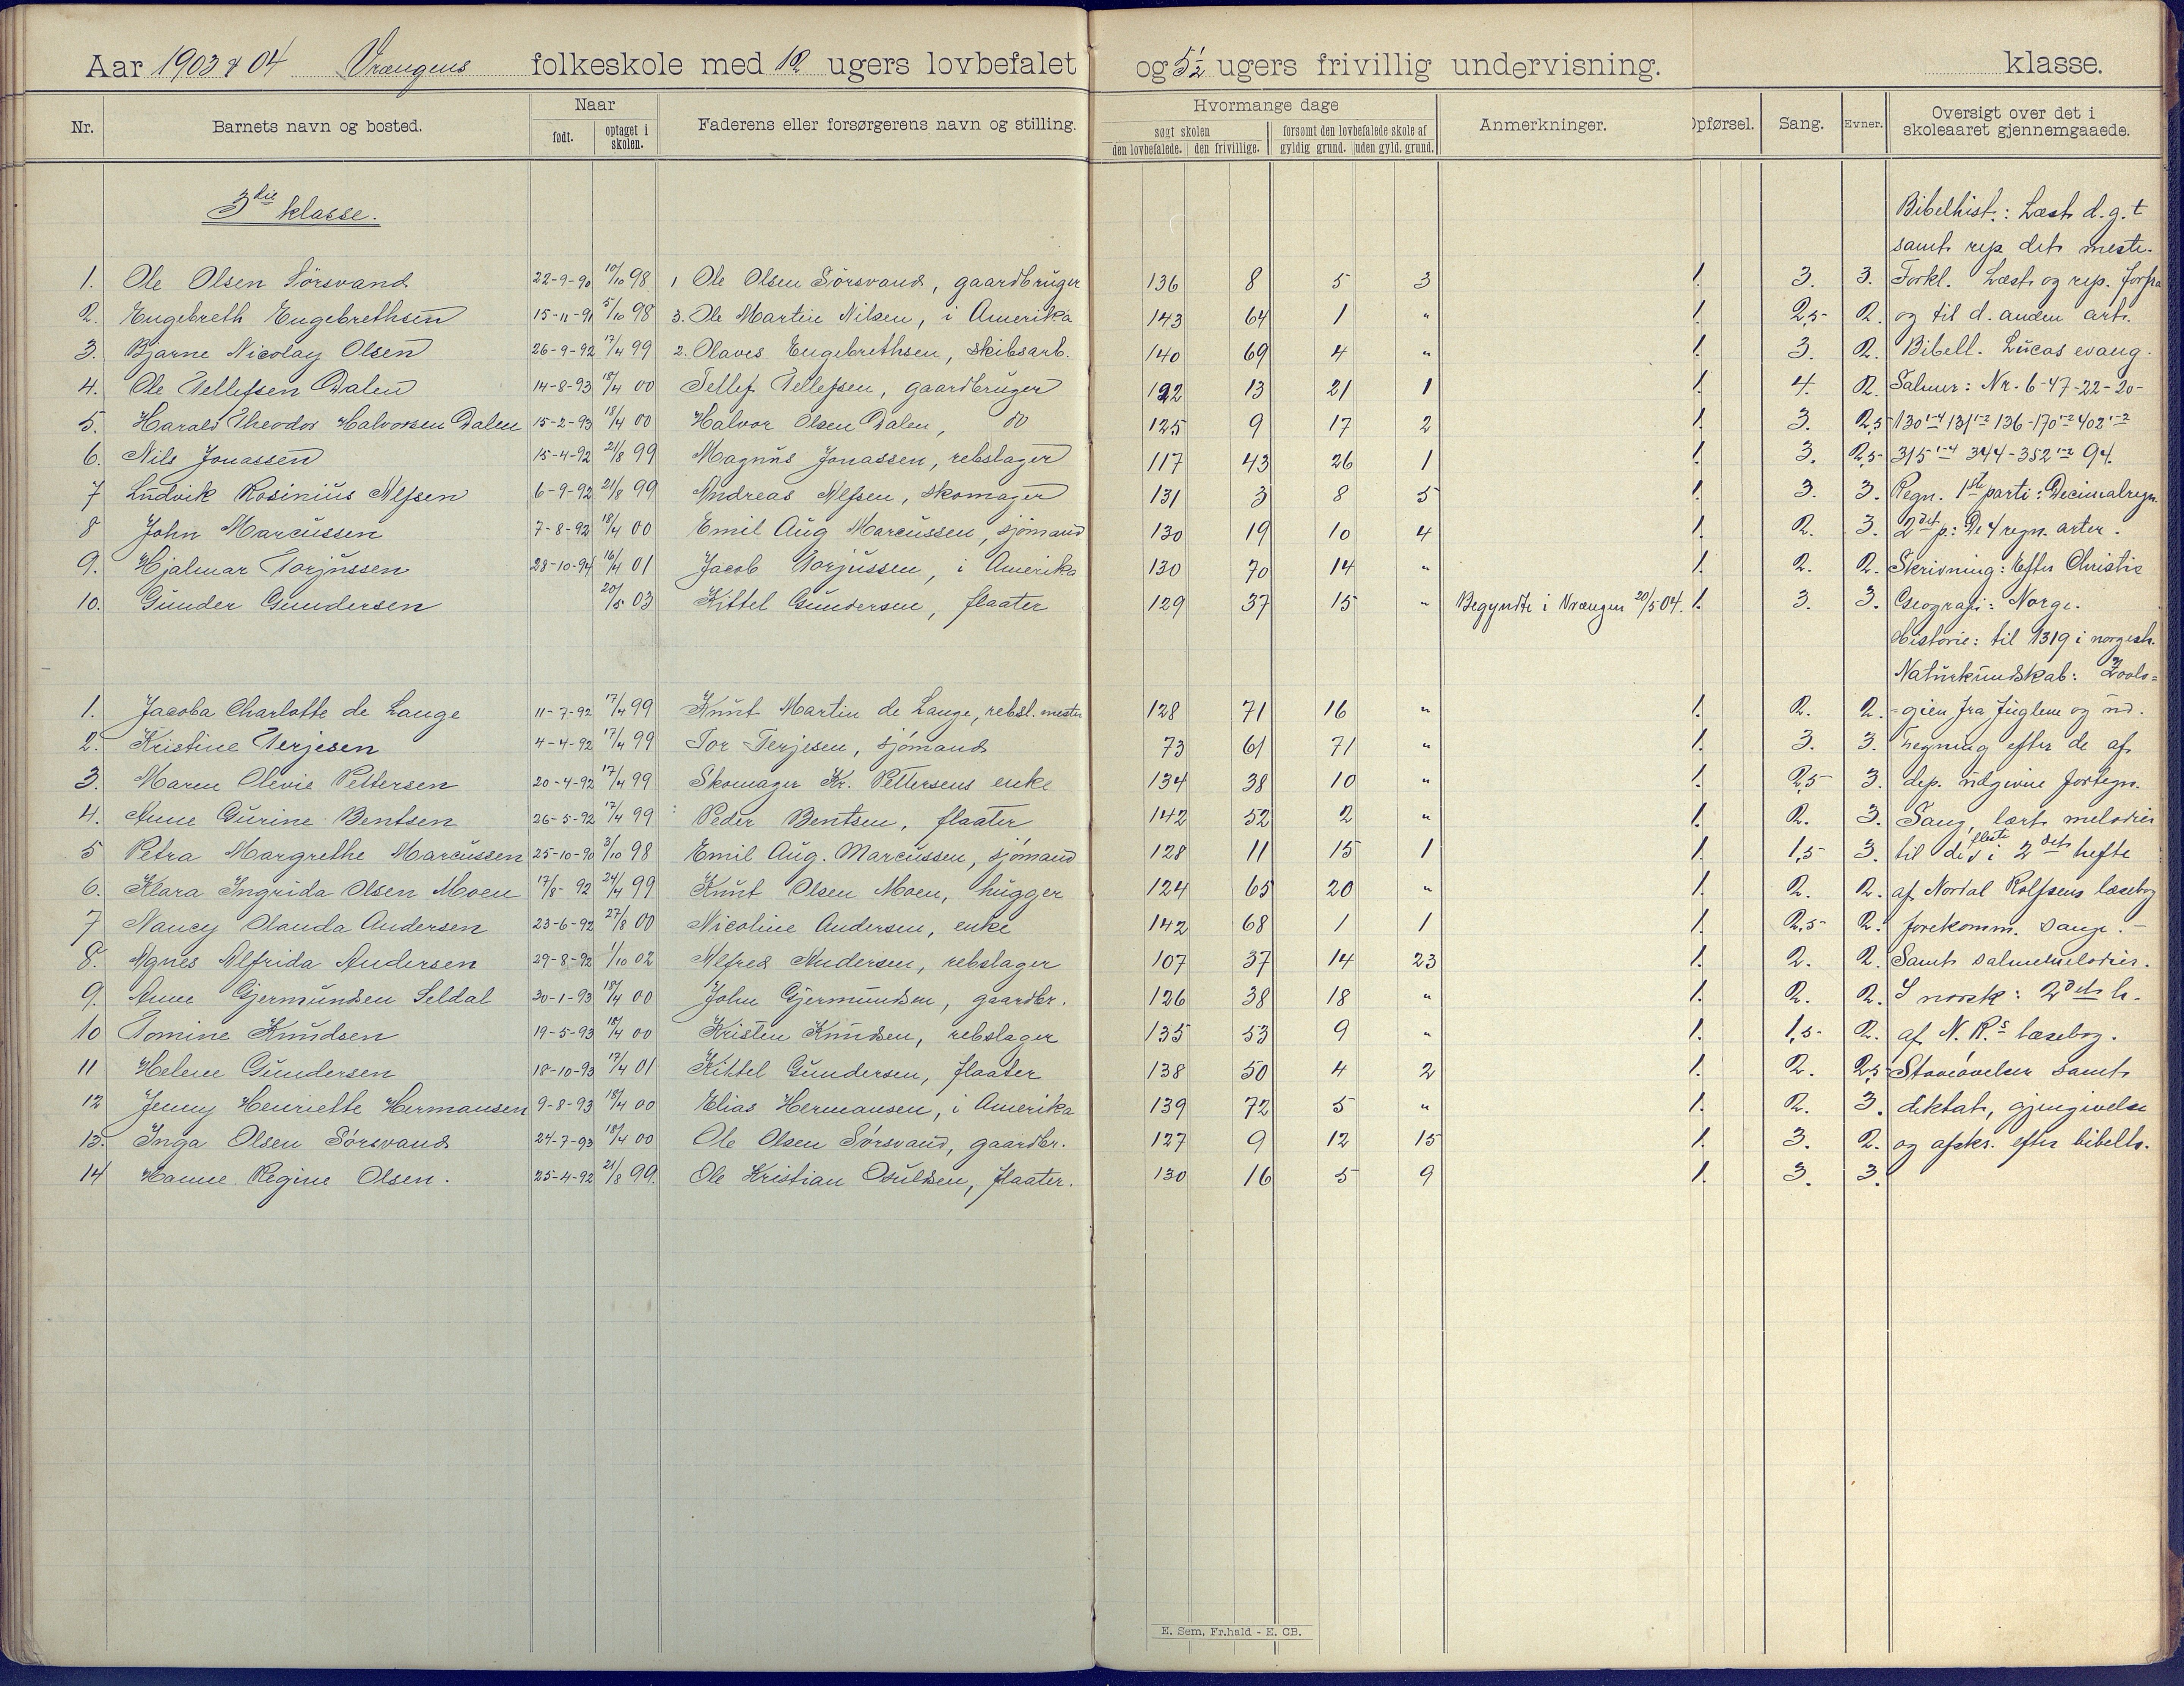 Aar 1903 & 04 Vrængens folkeskole med 12 ugers lovbefalet og 5½ ugers frivillig undervisning. klasse.
Nr. Barnets navn og bosted. Naar født. optaget i skolen. Faderens eller forsørgerens navn og stilling. Hvormange dage søgt skolen den lovbefalede. den frivillige. forsømt den lovbefalede skole af gyldig grund. uden gyld. grund. Anmerkninger. Opførsel. Sang. Evner. Oversigt over det i skoleaaret gjennemgaaede.
3die klasse. Bibelhist.: Læst d. g. t
samt rep det meste.
1. Ole Olsen Sörsvand 22-9-90 10/10 98 1 Ole Olsen Sörsvand, gaardbruger 136 8 5 3 1. 3. 3. Forkl. Læst og rep. forfra
2. Engebreth Engebrethsen 15-11-91 5/10 98 3. Ole Martin Nilsen, i Amerika 143 64 1 " 1. 2,5 2. og til d. anden art.
3. Bjarne Nicolay Olsen 26-9-92 17/4 99 2. Olaves Engebrethsen, skibsarb. 140 69 4 " 1. 3. 2. Bibell. Lucas evang.
4. Ole Tellefsen Dalen 14-8-93 18/4 00 Tellef Tellefsen, gaardbruger 122 13 21 1 1. 4. 2. Salmer: Nr. 6-47-22-20-
5. Harald Theodor Halvorsen Dalen 15-2-93 18/4 00 Halvor Olsen Dalen, do 125 9 17 2 1. 3. 2,5 130 1-4 131 1-2 136-170 1-2 402 1-2
6. Nils Jonassen 15-4-92 21/8 99 Magnus Jonassen, rebslager 117 43 26 1 1. 3. 2,5 315 1-4 344-352 1-2 94.
7 Ludvik Rosinius Alfsen 6-9-92 21/8 99 Andreas Alfsen, skomager 131 3 8 5 1. 3. 3. Regn. 1ste parti: Decimalregn.
8 John Marcussen 7-8-92 18/4 00 Emil Aug Marcussen, sjömand 130 19 10 4 1. 2. 3. 2det p: De 4 regn. arter.
9. Hjalmar Torjussen 28-10-94 16/4 01 Jacob Torjussen, i Amerika 130 70 14 " 1. 2. 2. Skrivning: Efter Christie
10. Gunder Gundersen 20/5 03 Kittel Gundersen, flaater 129 37 15 " Begyndte i Vrængen 20/5 04. 1. 3. 3. Geografi: Norge.
Historie: til 1319 i norgesh.
Naturkundskab: Zoolo=
1. Jacoba Charlotte de Lange 11-7-92 17/4 99 Knut Martin de Lange, rebsl. mester 128 71 16 " 1. 2. 2. -gien fra fuglene og ud.
2. Kristine Terjesen 4-4-92 17/4 99 Tor Terjesen, sjömand 73 61 71 " 1. 3. 3. Tegning efter de af
3. Maren Olevie Pettersen 20-4-92 17/4 99 Skomager Kr. Pettersens enke 134 38 10 " 1. 2,5 3. dep. udgivne fortegn.
4. Anne Gurine Bentsen 26-5-92 17/4 99 Peder Bentsen, flaater 142 52 2 " 1. 2. 3. Sang, lært melodier
5 Petra Margrethe Marcussen 25-10-90 3/10 98 Emil Aug. Marcussen, sjömand 128 11 15 1 1. 1,5 3. til de fleste i 2det hefte
6. Klara Ingrida Olsen Moen 17/8-92 24/4 99 Knut Olsen Moen, hugger 124 65 20 " 1. 2. 2. af Nordal Rolfsens læsebog
7 Nancy Olauda Andersen 23-6-92 27/8 00 Nicoline Andersen, enke 142 68 1 1 1. 2,5 2. forekomm. sange. -
8. Agnes Alfrida Andersen 29-8-92 1/10 02 Alfred Andersen, rebslager 107 37 14 23 1. 2. 2. Samt salmemelodier.
9. Anne Gjermundsen Seldal 30-1-93 18/4 00 John Gjermundsen, gaardbr. 126 38 18 " 1. 2. 2. I norsk: 2det h.
10 Tomine Knudsen 19-5-93 18/4 00 Kristen Knudsen, rebslager 135 53 9 " 1. 1,5 2. af N. R.s læsebog.
11 Helene Gundersen 18-10-93 17/4 01 Kittel Gundersen, flaater 138 50 4 2 1. 2. 2,5 Staveövelser samt
12 Jenny Henriette Hermansen 9-8-93 18/4 00 Elias Hermansen, i Amerika 139 72 5 " 1. 2. 3. diktat, gjengivelse
13. Inga Olsen Sörsvand 24-7-93 18/4 00 Ole Olsen Sörsvand, gaardbr. 127 9 12 15 1. 3. 2. og afskr. efter bibelh.
14 Hanne Regine Olsen. 25-4-92 21/8 99. Ole Kristian Osuldsen, flaater. 130 16 5 9 1. 3. 3.
E. Sem, Fr.hald - E. CB.